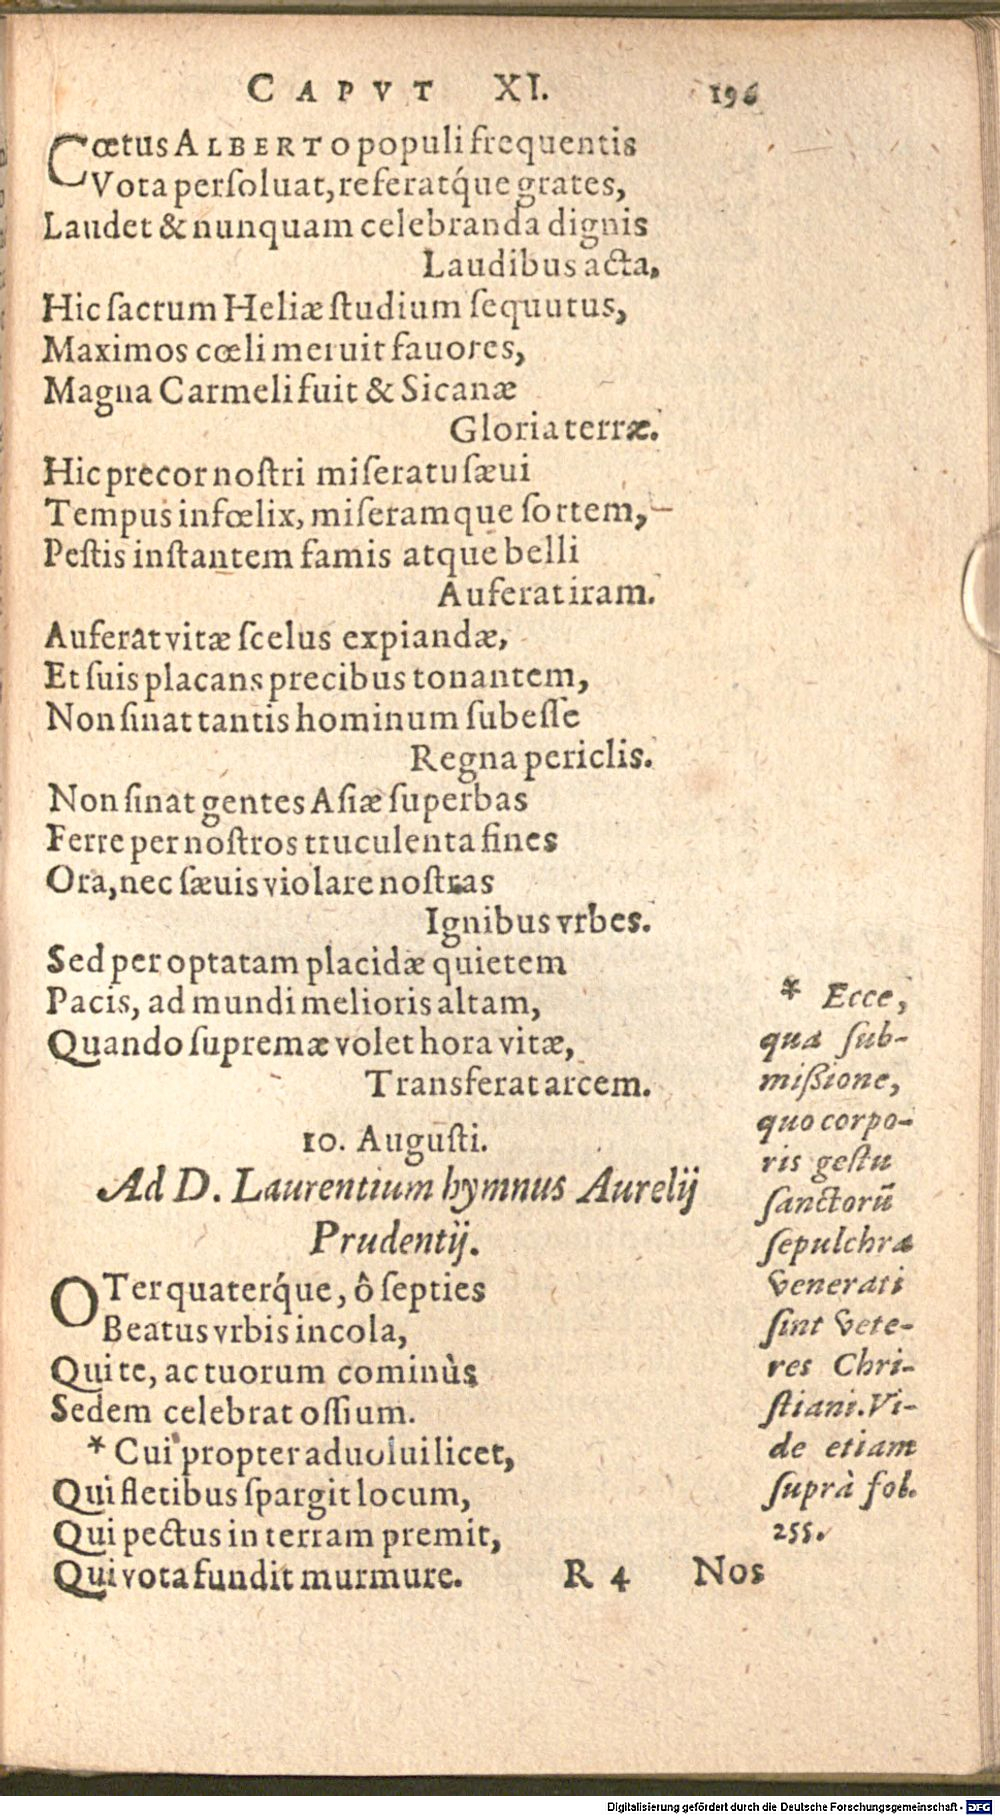 CAPVT XI. 196
Cœtus ALBERTO populi frequentis
Vota persoluat, referatq́ue grates,
Laudet & nunquam celebranda dignis
Laudibus acta.
Hic sacrum Heliæ studium sequutus,
Maximos cœli meruit fauores,
Magna Carmeli fuit & Sicanæ
Gloria terræ.
Hic precor nostri miseratu sæui
Tempus infœlix, miseramque sortem,
Pestis instantem famis atque belli
Auferat iram.
Auferat vitæ scelus expiandæ,
Et suis placans precibus tonantem,
Non sinat tantis hominum subesse
Regna periclis.
Non sinat gentes Asiæ superbas
Ferre per nostros truculenta fines
Ora, nec sæuis violare nostras
Ignibus vrbes.
Sed per optatam placidæ quietem
Pacis, ad mundi melioris altam,
Quando supremæ volet hora vitæ,
Transferat arcem.
10. Augusti.
Ad D. Laurentium hymnus Aurelij
Prudentij.
O Ter quaterq́ue, ô septies
Beatus vrbis incola,
Qui te, ac tuorum cominùs
Sedem celebrat ossium.
* Cui propter aduolui licet,
Qui fletibus spargit locum,
Qui pectus in terram premit,
Qui vota fundit murmure.
* Ecce,
qua sub-
missione,
quo corpo-
ris gestu
sanctorũ
sepulchra
venerati
sint vete-
res Chri-
stiani. Vi-
de etiam
suprà fol.
255.
R 4 Nos
Digitalisierung gefördert durch die Deutsche Forschungsgemeinschaft - DFG